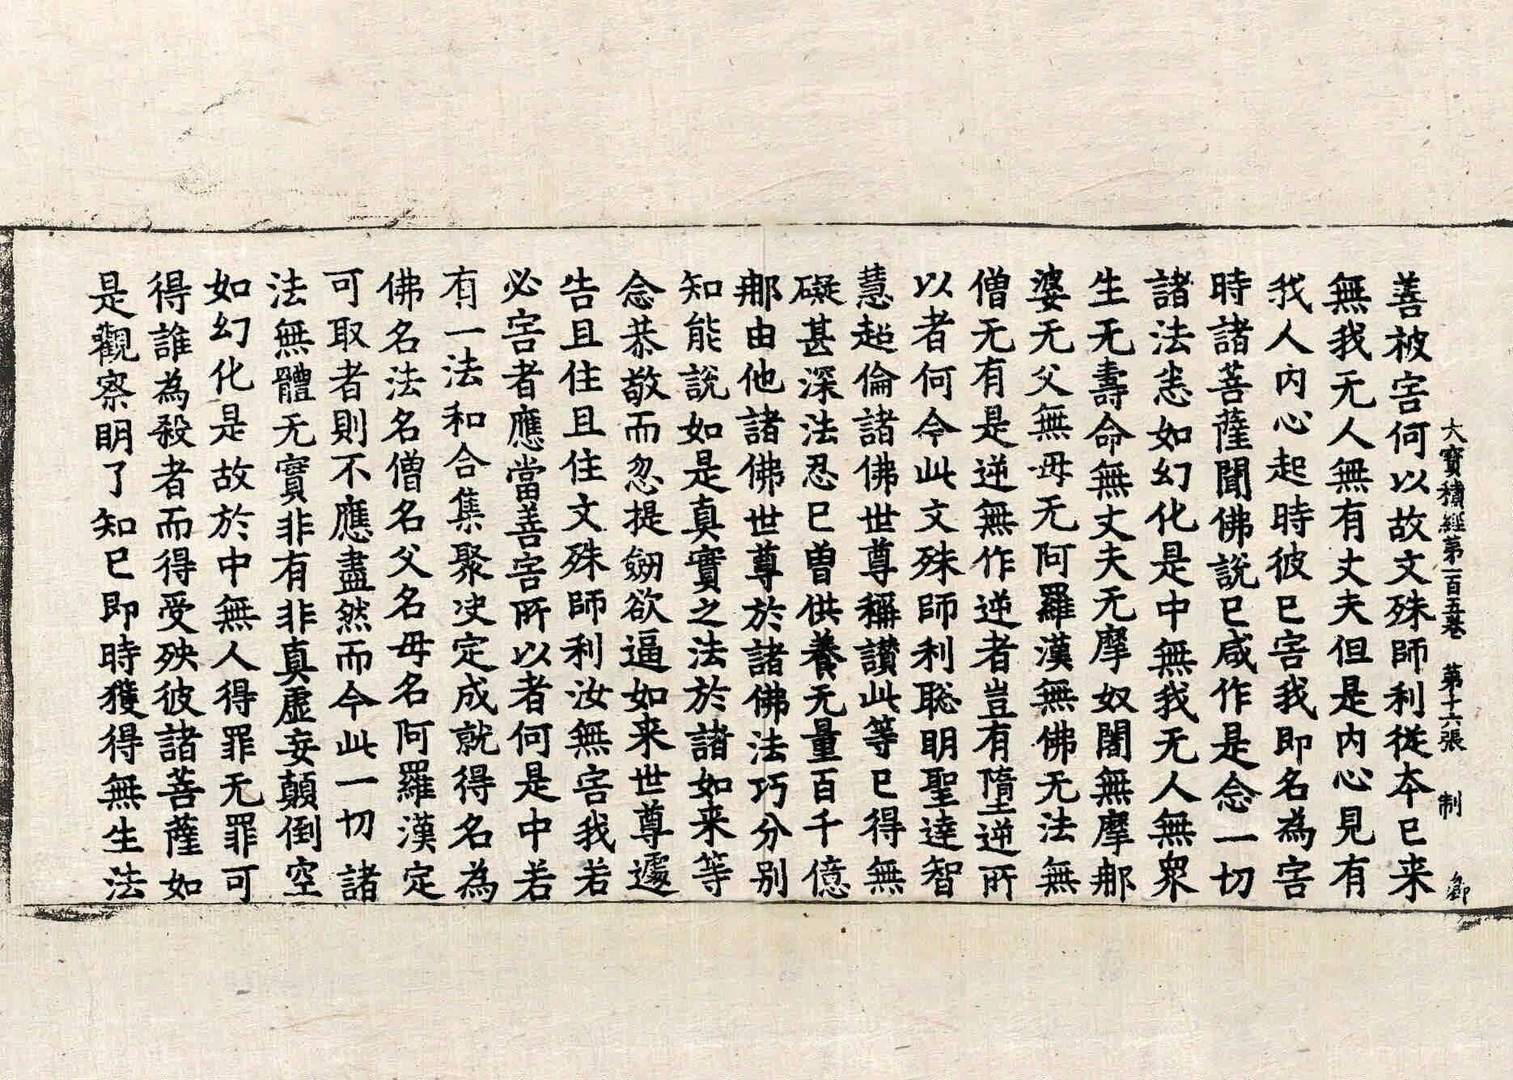 大寶積經第一百五卷 第十六張 制
善被害何以故文殊師利從本已来
無我无人無有丈夫但是内心見有
我人内心起時彼已害我即名為害
時諸菩薩聞佛說已咸作是念一切
諸法恚如幻化是中無我无人無衆
生无壽命無丈夫无摩奴闍無摩那
婆无父無母无阿羅漢無佛无法無
僧无有是逆無作逆者豈有墮逆所
以者何今此文殊師利聡明聖達智
慧超倫諸佛世尊稱讃此等已得無
礙甚深法忍已曽供養无量百千億
那由他諸佛世尊於諸佛法巧分别
知能說如是真實之法於諸如来等
念恭敬而忽提劒欲逼如来世尊遽
告且住且住文殊師利汝無害我若
必害者應當善害所以者何是中若
有一法和合集聚决定成就得名為
佛名法名僧名父名母名阿羅漢定
可取者則不應盡然而今此一切諸
法無體无實非有非真虚妄顛倒空
如幻化是故於中無人得罪无罪可
得誰為殺者而得受殃彼諸菩薩如
是觀察明了知已即時獲得無生法